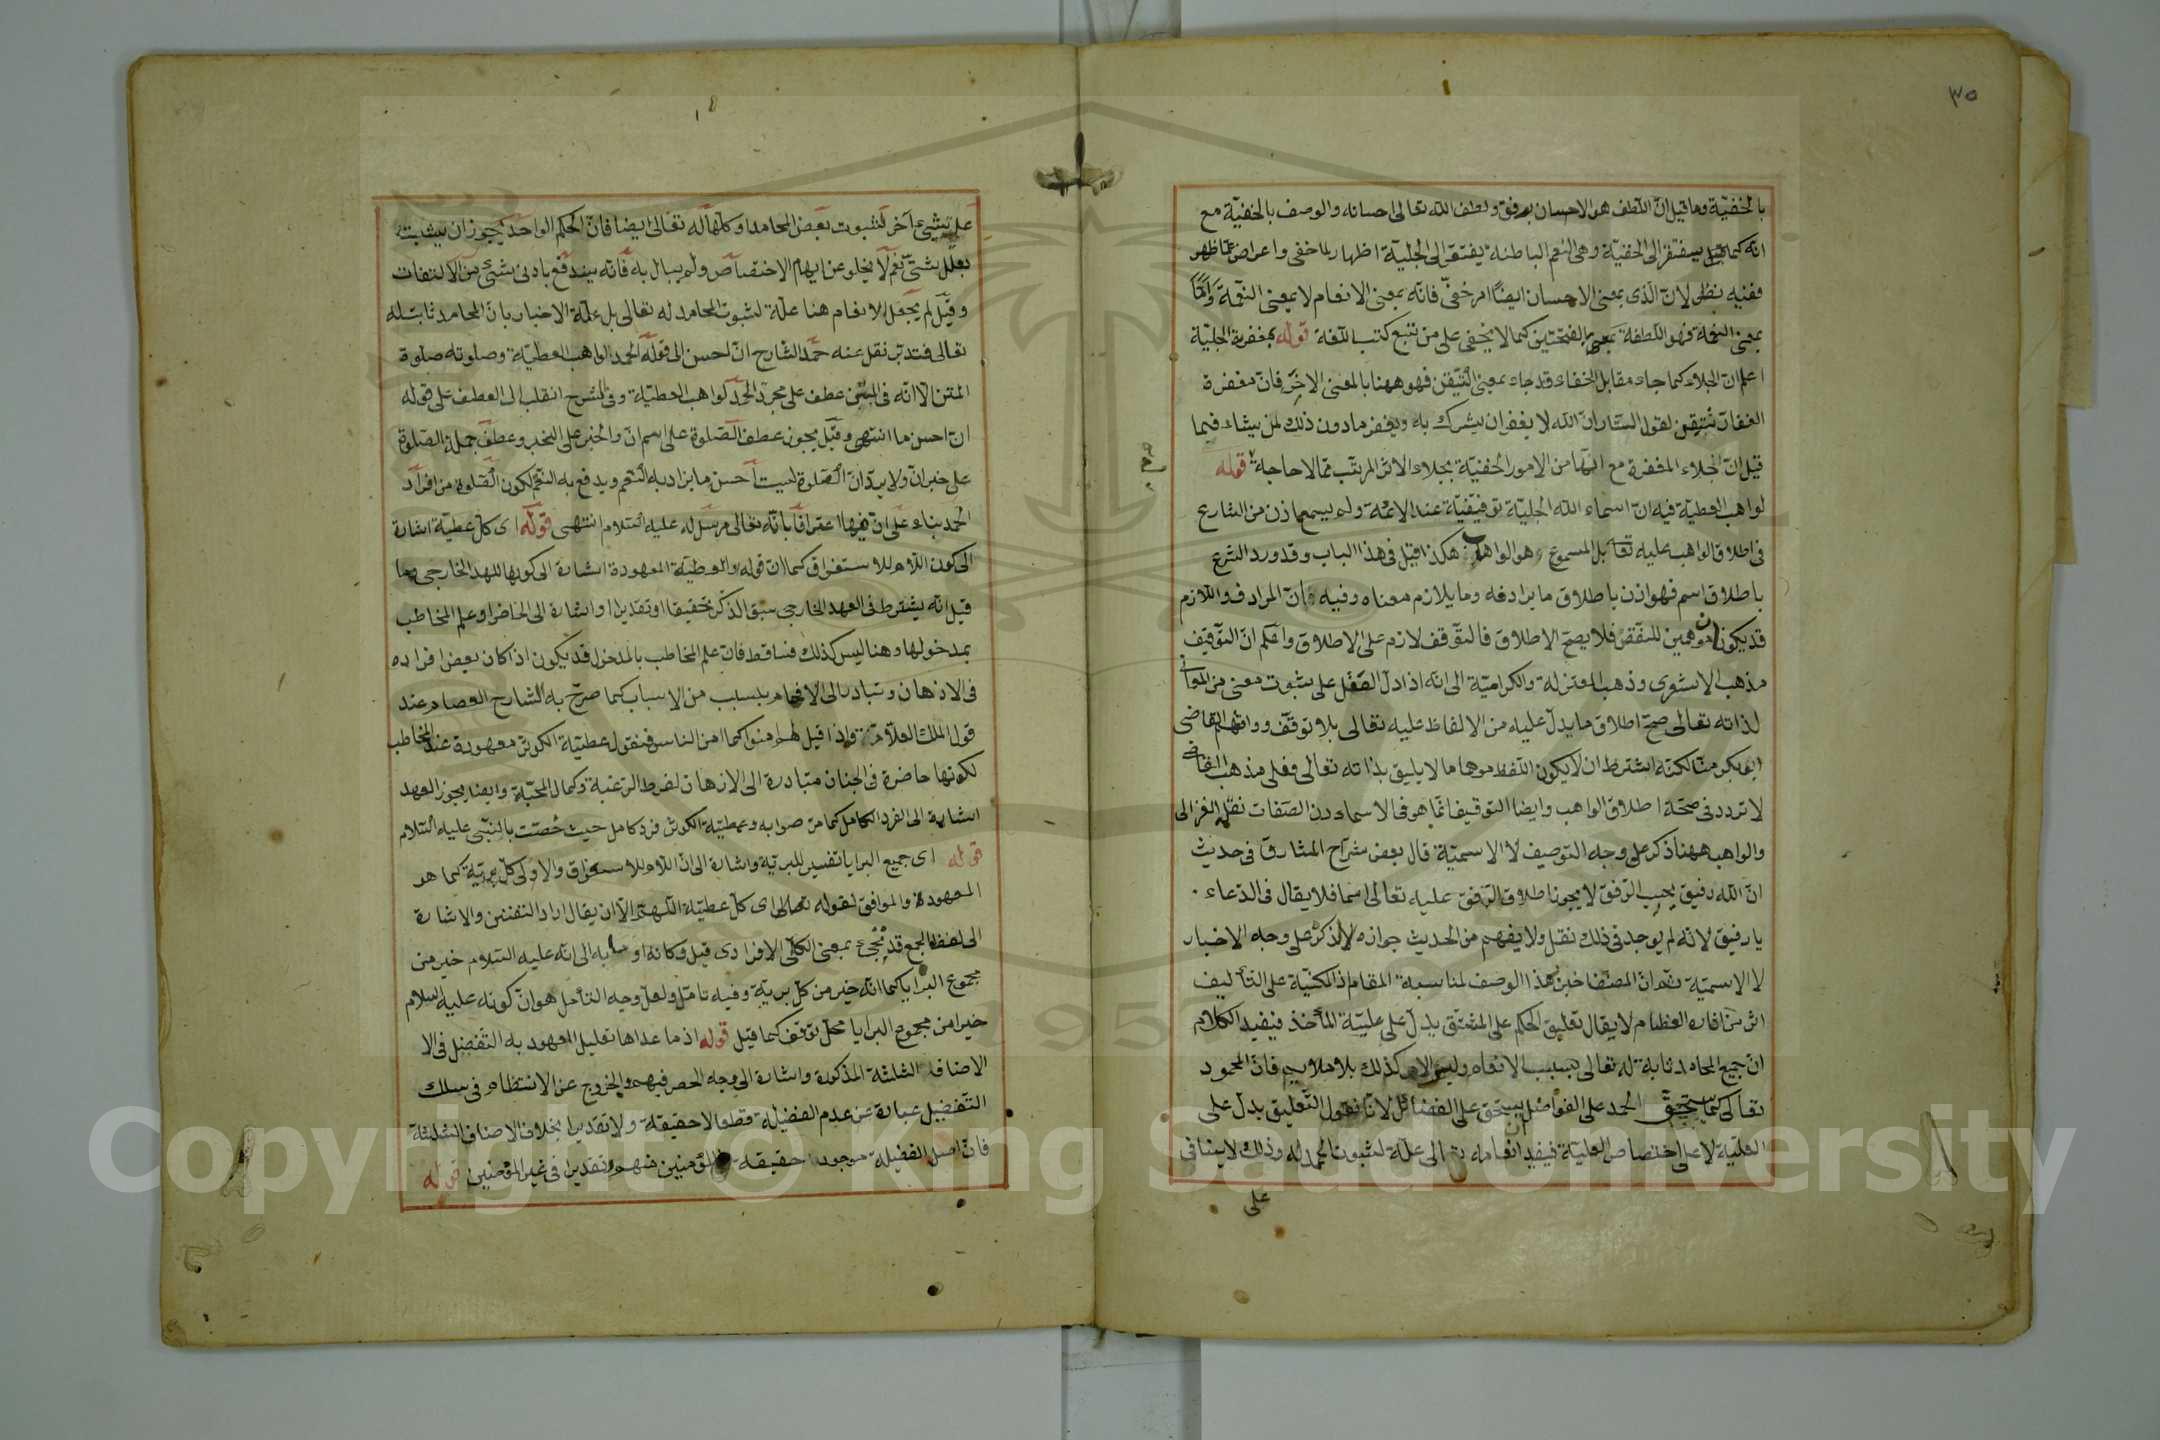 ٣٥
بالخفية وما قيل ان اللطف هو الاحسان برفق ولطف الله تعالى احسانه والوصف بالخفية مع
انه كما قيل يفتقر الى الخفية وهى النعم الباطنة يفتقر الى الجلية اظهارا لما خفى واعراض عما ظهر
ففيه نظر لان الذى بمعنى الاحسان ايضا امر خفى فانه بمعنى الانعام لا بمعنى النعمة واما
بمعنى النعمة فهو اللطفة بفتحتين كما لا يخفى على من تتبع كتب اللغة قوله بمغفرته الجلية
اعلم ان الجلاء كما جاء مقابل الخفاء قد جاء بمعنى التيقن فهو ههنا بالمعنى الاخير فان مغفرة
الغفار متيقن لقول الستار ان الله لا يغفر ان يشرك به ويغفر ما دون ذلك لمن يشاء فما
قيل ان الجلاء المغفرة مع انها من الامور الخفية بجلاء الاثر المرتب مما لا حاجة قوله
لواهب العطية فيه ان اسماء الله الجلية توقيفية عند الائمة ولم يسمع اذن من الشارع
فى اطلاق الواهب عليه تعا بل المسموع هو الوهاب هكذا قيل فى هذا الباب وقد ورد الشرع
باطلاق اسم فهو اذن باطلاق ما يرادفه وما يلازم معناه وفيه ان المرادف واللازم
قد يكونان موهمين للنقص فلا يصح الاطلاق فالتوقف لازم على الاطلاق واعلم ان التوقيف
مذهب الاشعرى وذهب المعتزلة والكرامية الى انه اذا دل العقل على ثبوت معنى من المعانى
لذاته تعالى صح اطلاق ما يدل عليه من الالفاظ عليه تعالى بلا توقف ووافقهم القاضى
ابو بكر منا لكنه اشترط ان لا يكون اللفظ موهما ما لا يليق بذاته تعالى فعلى مذهب القاضى
لا تردد فى صحة اطلاق الواهب وايضا التوقيف انما هو فى الاسماء دون الصفات نقله الغزالى
والواهب ههنا ذكر على وجه التوصيف لا الاسمية قال بعض شراح المشارق فى حديث
ان الله رفيق يحب الرفق لا يجوز اطلاق الرفق عليه تعالى اسما فلا يقال فى الدعاء
يا رفيق لانه لم يوجد فى ذلك نقل ولا يفهم من الحديث جوازه لانه ذكر على وجه الاخبار
لا الاسمية ثم ان المصنف اختار هذا الوصف لمناسبة المقام اذ المكنة على التأليف
اثر من اثاره العظام لا يقال تعليق الحكم على المشتق يدل على علية المأخذ فيفيد الكلام
ان جميع المحامد ثابتة له تعالى بسبب الانعام وليس الامر كذلك بلا ملايم فان المحمود
تعالى كما يستحق الحمد على الفواضل يستحق على الفضائل لانا نقول التعليق يدل على
العلية لا على اختصاص العلية فيفيد ان انعامه تعالى علة لثبوت الحمد له وذلك لا ينافى
على
على شىء آخر لثبوت بعض المحامد او كلها له تعالى ايضا فان الحكم الواحد يجوز ان يثبت
بعلل شتى نعم لا يخلو عن ايهام الاختصاص ولم يبال به فانه يندفع بادنى شىء من الالتفات
وقيل لم يجعل الانعام هنا علة لثبوت المحامد له تعالى بل علة الاخبار بان المحامد ثابتة له
تعالى فتدبر نقل عنه حمد الشارح ان احسن الى قوله الحمد لواهب العطية وصلوته صلوة
المتن الا انه فى المتن عطف على مجرد الحمد لواهب العطية وفى الشرح انقلب الى العطف على قوله
ان احسن ما انتهى وقيل يجوز عطف الصلوة على اسم ان والخبر على الخبر وعطف جملة الصلوة
على خبر ان ولا يرد ان الصلوة ليست احسن ما يزاد به النعم ويدفع به النقم لكون الصلوة من افراد
الحمد بناء على ان فيها اعترافا بانه تعالى مرسل له عليه السلام انتهى قوله اى كل عطية اشارة
الى كون اللام للاستغراق كما ان قوله والعطية المعهودة اشارة الى كونها للعهد الخارجى وما
قيل انه يشترط فى العهد الخارجى سبق الذكر تحقيقا او تقديرا او اشارة الى الحاضر او علم المخاطب
بمدخولها وهنا ليس كذلك فساقط فان علم المخاطب بالمدخول قد يكون اذا كان بعض افراده
فى الاذهان وتبادر الى الافهام بسبب من الاسباب كما صرح به الشارح العصام عند
قول الملك العلام واذا قيل لهم امنوا كما امن الناس فنقول عطية الكوثر معهودة عند المخاطب
لكونها حاضرة فى الجنان متبادرة الى الاذهان لفرط الرغبة وكمال المحبة وايضا يجوز العهد
اشارة الى الفرد الكامل كما مر صوابه وعطية الكوثر فرد كامل حيث خصت بالنبى عليه السلام
قوله اى جميع البرايا تفسير للبرية واشارة الى ان اللام للاستغراق والاولى كل برية كما هو
المعهود والموافق لقوله تعالى اى كل عطية اللهم الا ان يقال اراد التفنن والاشارة
الى لفظ الجمع قد يجىء بمعنى الكل الافرادى قيل وكانه اومأ به الى انه عليه السلام خير من
مجموع البرايا كما انه خير من كل برية وفيه تامل ولعل وجه التأمل هو ان كونه عليه السلام
خيرا من مجموع البرايا محل توقف كما قيل قوله اذ ما عداها تعليل المعهود به التفضيل فى الا
الاصناف الثلثة المذكورة واشارة الى وجه الحصر فيهم والخروج عن الانتظام فى سلك
التفضيل عبارة عن عدم الفضيلة قطعا لا حقيقة ولا تقديرا بخلاف الاصناف الثلثة
فان اصل الفضيلة موجود حقيقة فى المؤمنين منهم وتقديرا فى غير المؤمنين قوله
Copyright © King Saud University